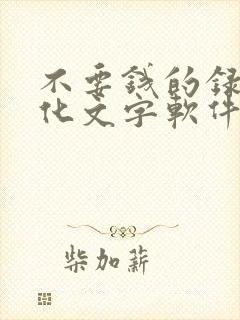 不要錢的錄
化文字軟件
柴加薪